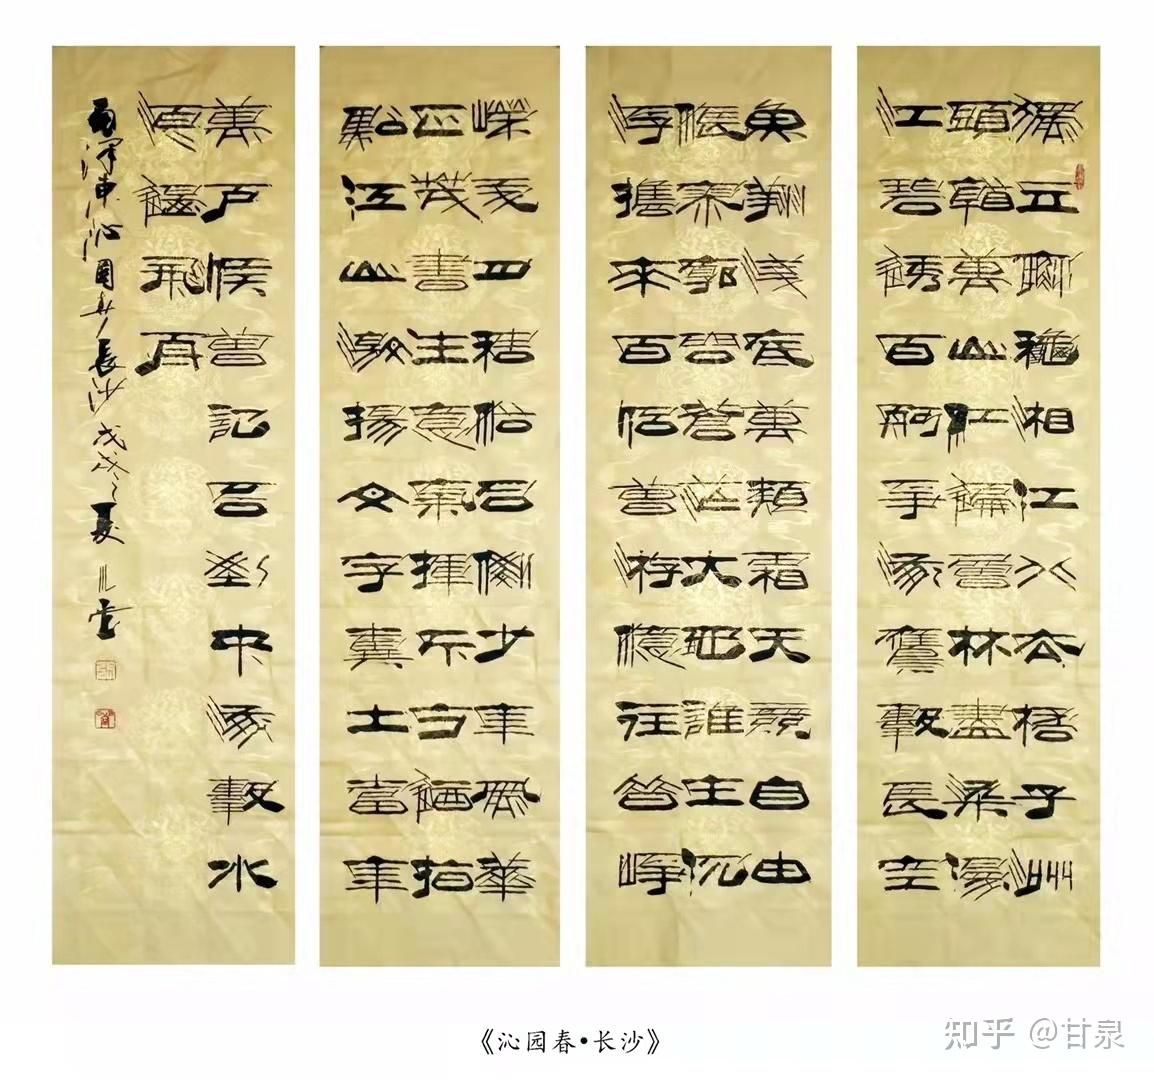 獨立寒穐湘江北去桔子洲
頭看萬山紅遍層林盡染漫
江碧透百舸爭流鷹擊長空
魚翔淺底萬類霜天競自由
悵寥廓問蒼茫大地誰主沉
浮攜來百侣曾游憶往昔崢
嶸歲月稠恰同學少年風華
正茂書生意氣揮斥方遒指
點江山激揚文字糞土當年
萬户侯曾記否到中流擊水
浪遏飛舟
毛澤東沁園春長沙戊戌之夏
《沁园春•长沙》
知乎 @甘泉